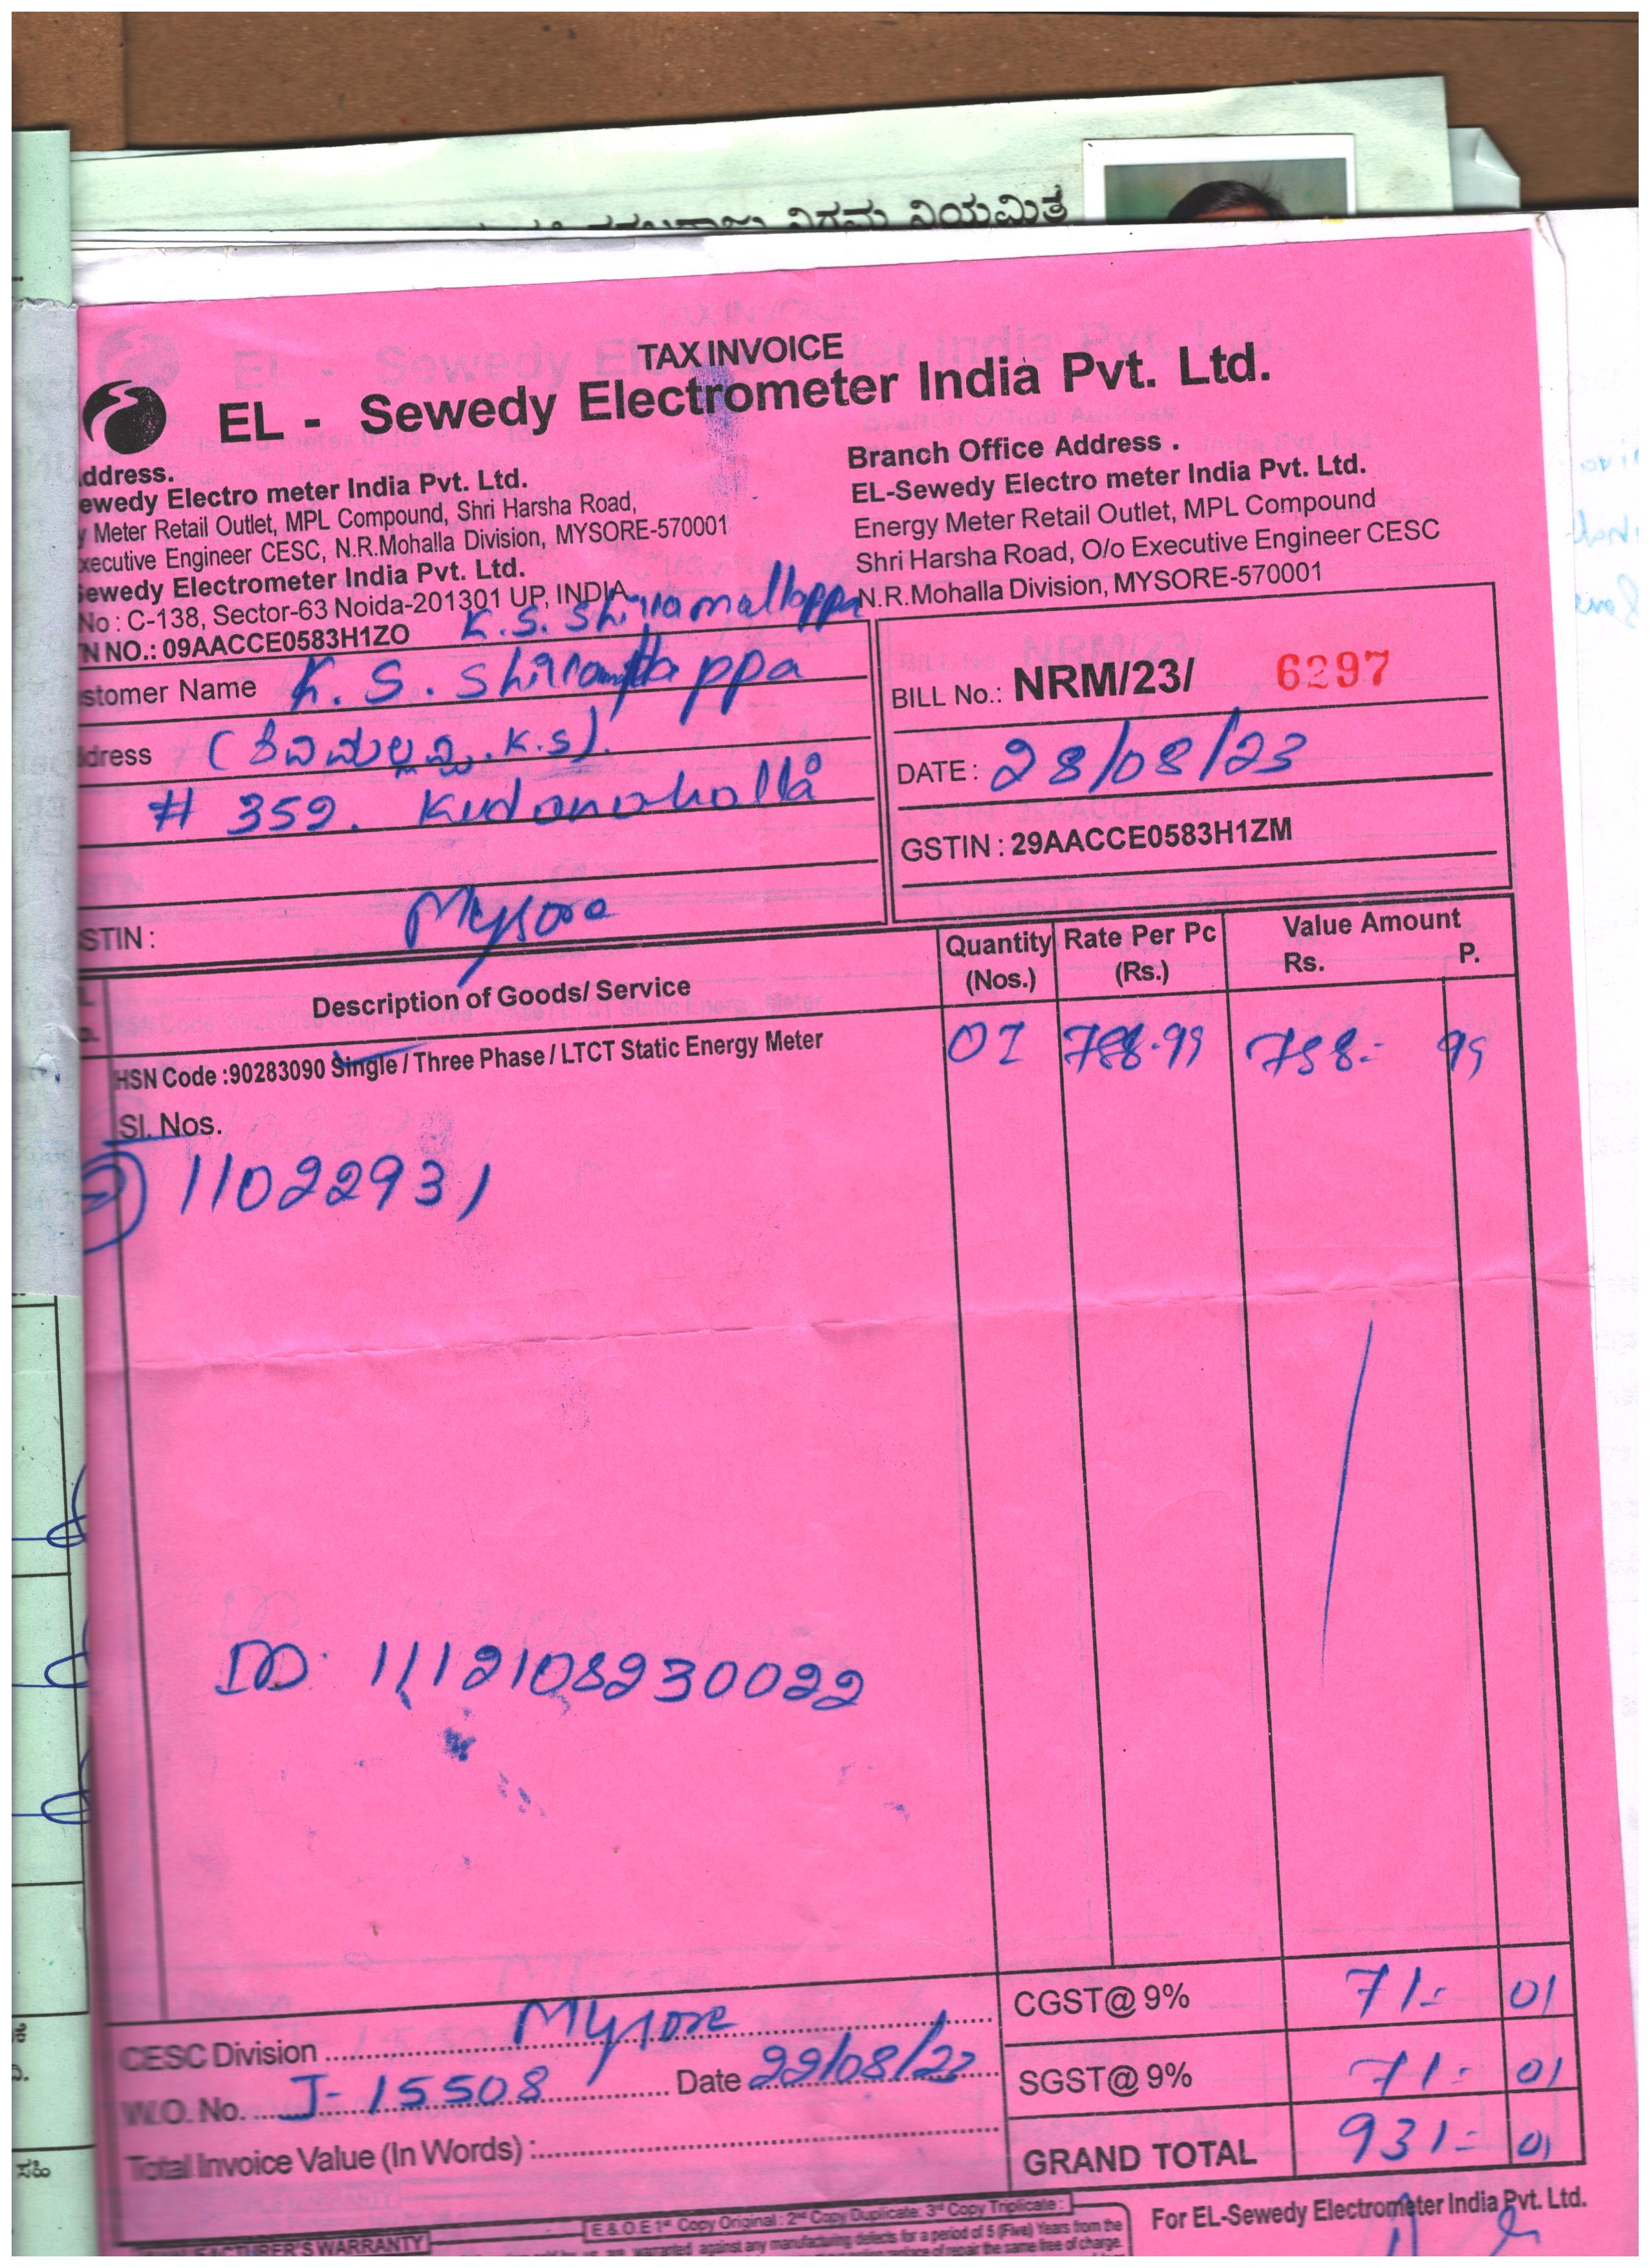 ನಿಗಮ ನಿಯಮಿತ
TAX INVOICE
EL - Sewedy Electrometer India Pvt. Ltd.
ddress.
ewedy Electro meter India Pvt. Ltd.
y Meter Retail Outlet, MPL Compound, Shri Harsha Road,
xecutive Engineer CESC, N.R.Mohalla Division, MYSORE-570001
Sewedy Electrometer India Pvt. Ltd.
No : C-138, Sector-63 Noida-201301 UP, INDIA
N NO.: 09AACCE0583H1ZO
Branch Office Address .
EL-Sewedy Electro meter India Pvt. Ltd.
Energy Meter Retail Outlet, MPL Compound
Shri Harsha Road, O/o Executive Engineer CESC
N.R.Mohalla Division, MYSORE-570001
K.S. Shivamallappa
stomer Name K. S. Shivamallappa
ddress (ಶಿವಮಲ್ಲಪ್ಪ.K.S).
# 359. Kudanahalli
Mysore
STIN :
BILL No.: NRM/23/ 6297
DATE : 28/08/23
GSTIN : 29AACCE0583H1ZM
Description of Goods/ Service Quantity (Nos.) Rate Per Pc (Rs.) Value Amount Rs. P.
HSN Code :90283090 Single / Three Phase / LTCT Static Energy Meter 01 788.99 788=99
Sl. Nos.
11022931
DD: 1112108230022
CESC Division Mysore
W.O. No. J-15508 Date 22/08/23
Total Invoice Value (In Words) :
CGST@ 9% 71= 01
SGST@ 9% 71= 01
GRAND TOTAL 931= 01
E & O.E 1st Copy Original : 2nd Copy Duplicate: 3rd Copy Triplicate :
For EL-Sewedy Electrometer India Pvt. Ltd.
MANUFACTURER'S WARRANTY
warranted against any manufacturing defects for a period of 5 (Five) Years from the